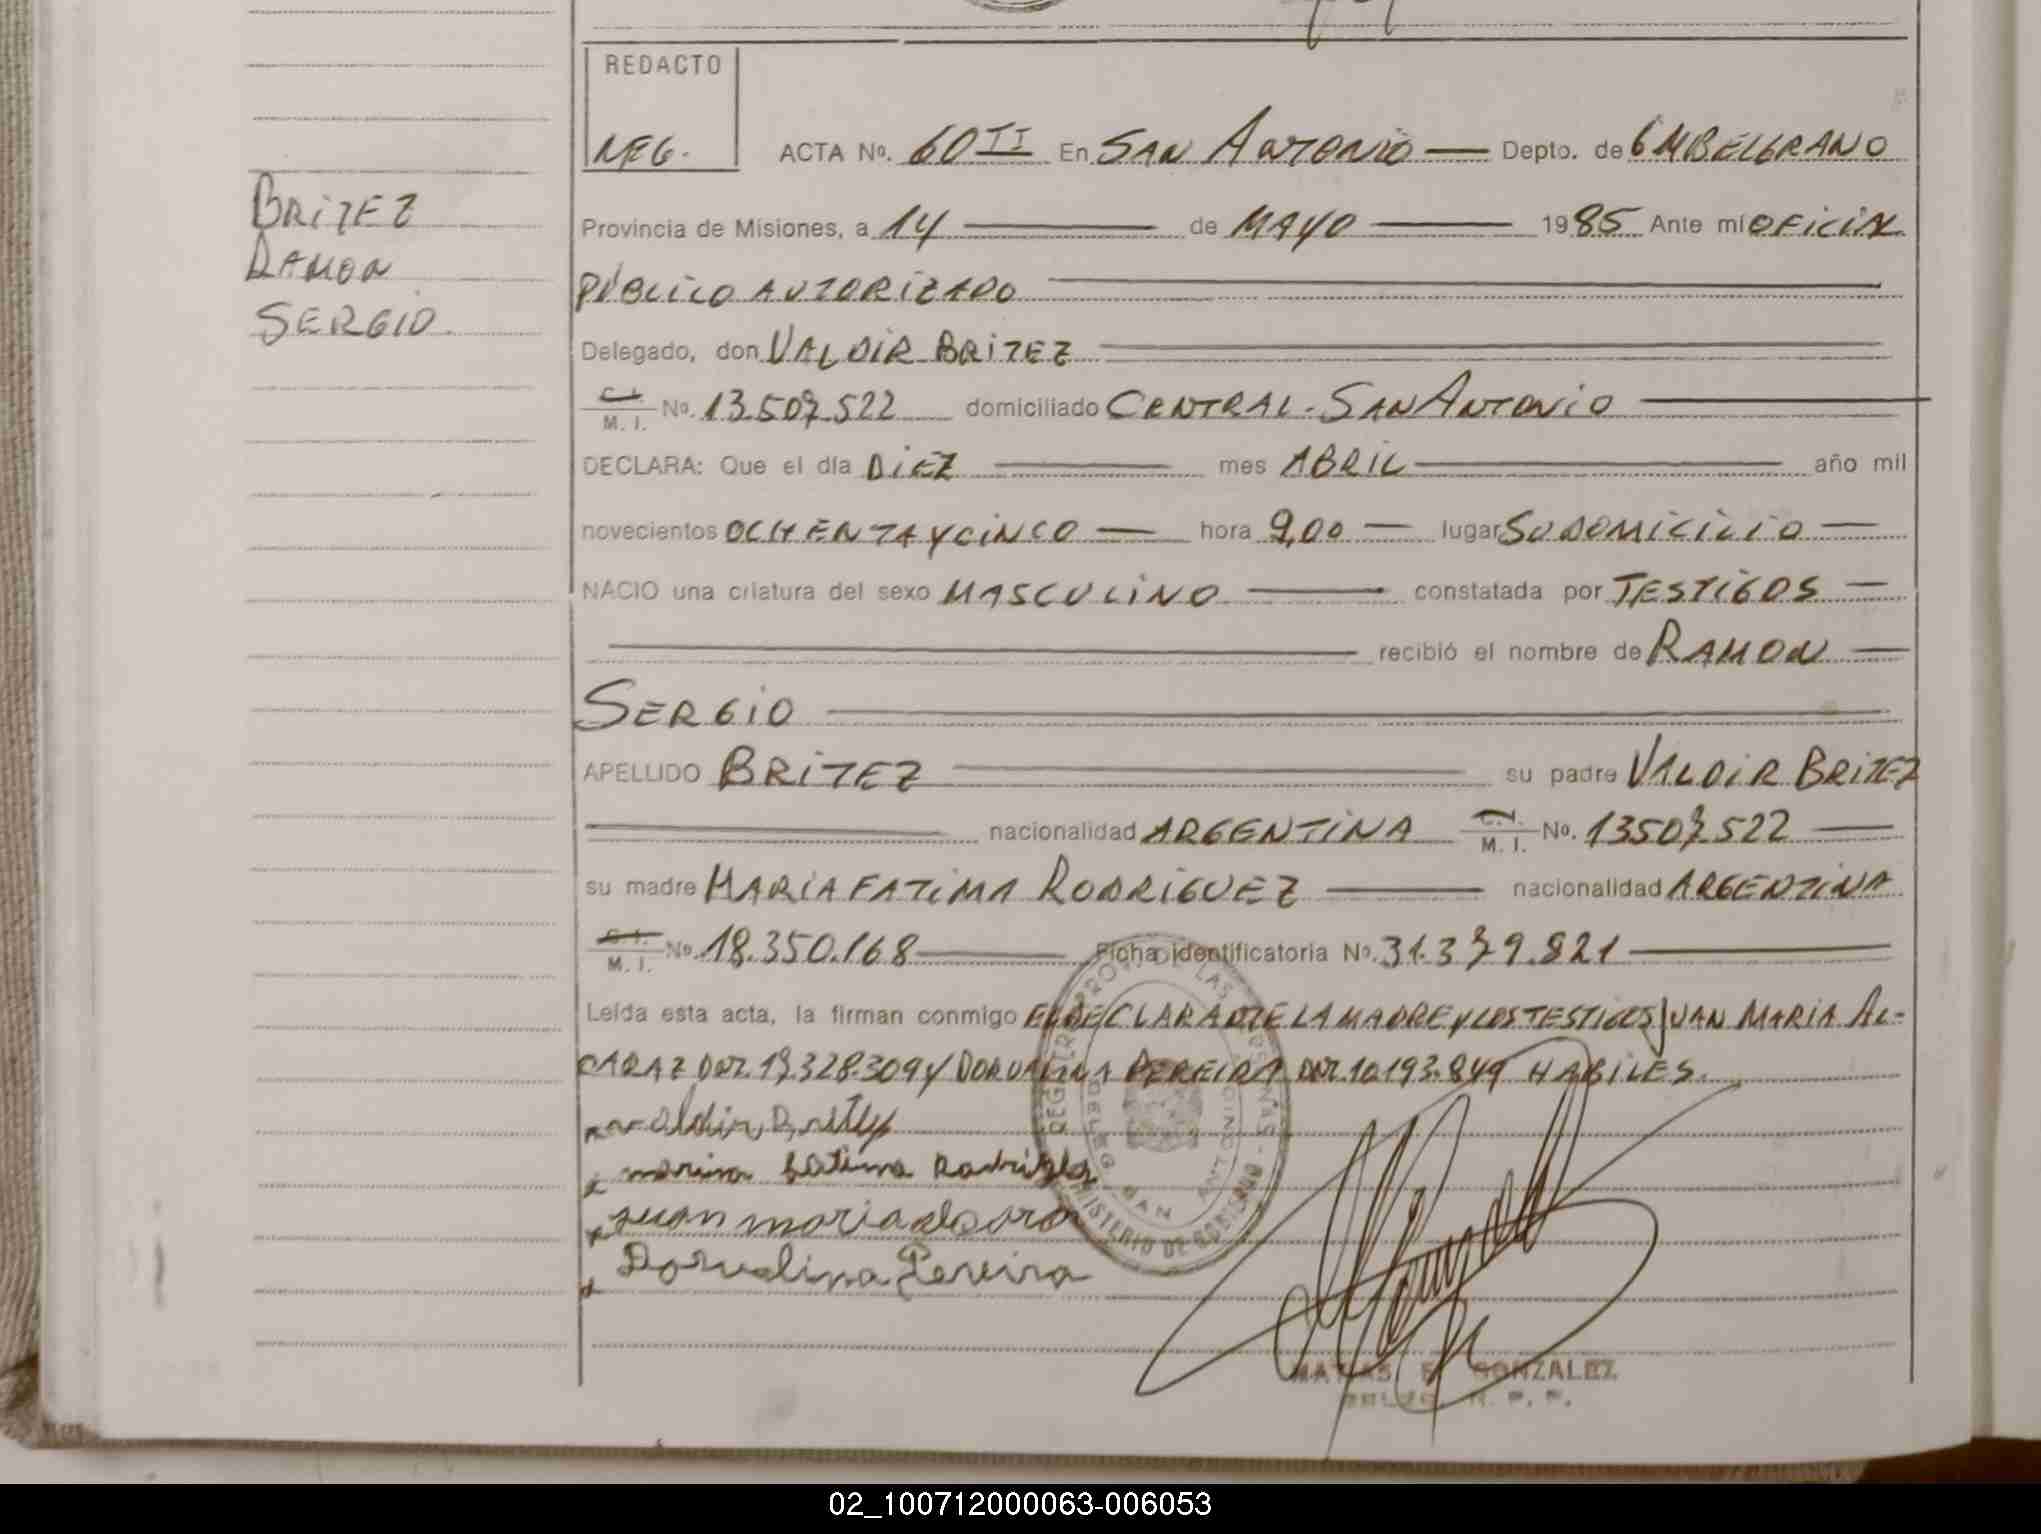 REDACTO
MEG.
ACTA No. 60 II En SAN ANTONIO Depto. de G M BELGRANO
BRITEZ
RAMON
SERGIO
Provincia de Misiones, a 14 de MAYO 1985 Ante mí OFICIAL
PÚBLICO AUTORIZADO
Delegado, don VALDIR BRITEZ
C. I. M. I. No. 13.507.522 domiciliado CENTRAL - SAN ANTONIO
DECLARA: Que el día DIEZ mes ABRIL año mil
novecientos OCHENTA Y CINCO hora 9,00 lugar SU DOMICILIO
NACIO una criatura del sexo MASCULINO constatada por TESTIGOS
recibió el nombre de RAMON
SERGIO
APELLIDO BRITEZ su padre VALDIR BRITEZ
nacionalidad ARGENTINA C. I. M. I. No. 13507.522
su madre MARIA FATIMA RODRIGUEZ nacionalidad ARGENTINA
C. I. M. I. No. 18.350.168 Ficha identificatoria No. 31.379.821
Leída esta acta, la firman conmigo EL DECLARANTE LA MADRE Y LOS TESTIGOS JUAN MARIA AL-
CARAZ DNI. 17.328.309 Y DORVALINA PEREIRA DNI. 10.193.849 HABILES.
Valdir Britez
maria fatima Rodriguez
juan maria alcara
Dorvalina Pereira
REGISTRO PROV. DE LAS PERSONAS - MINISTERIO DE GOBIERNO
SAN ANTONIO
MATIAS E. GONZALEZ
DELEG. R. P. P.
02_100712000063-006053